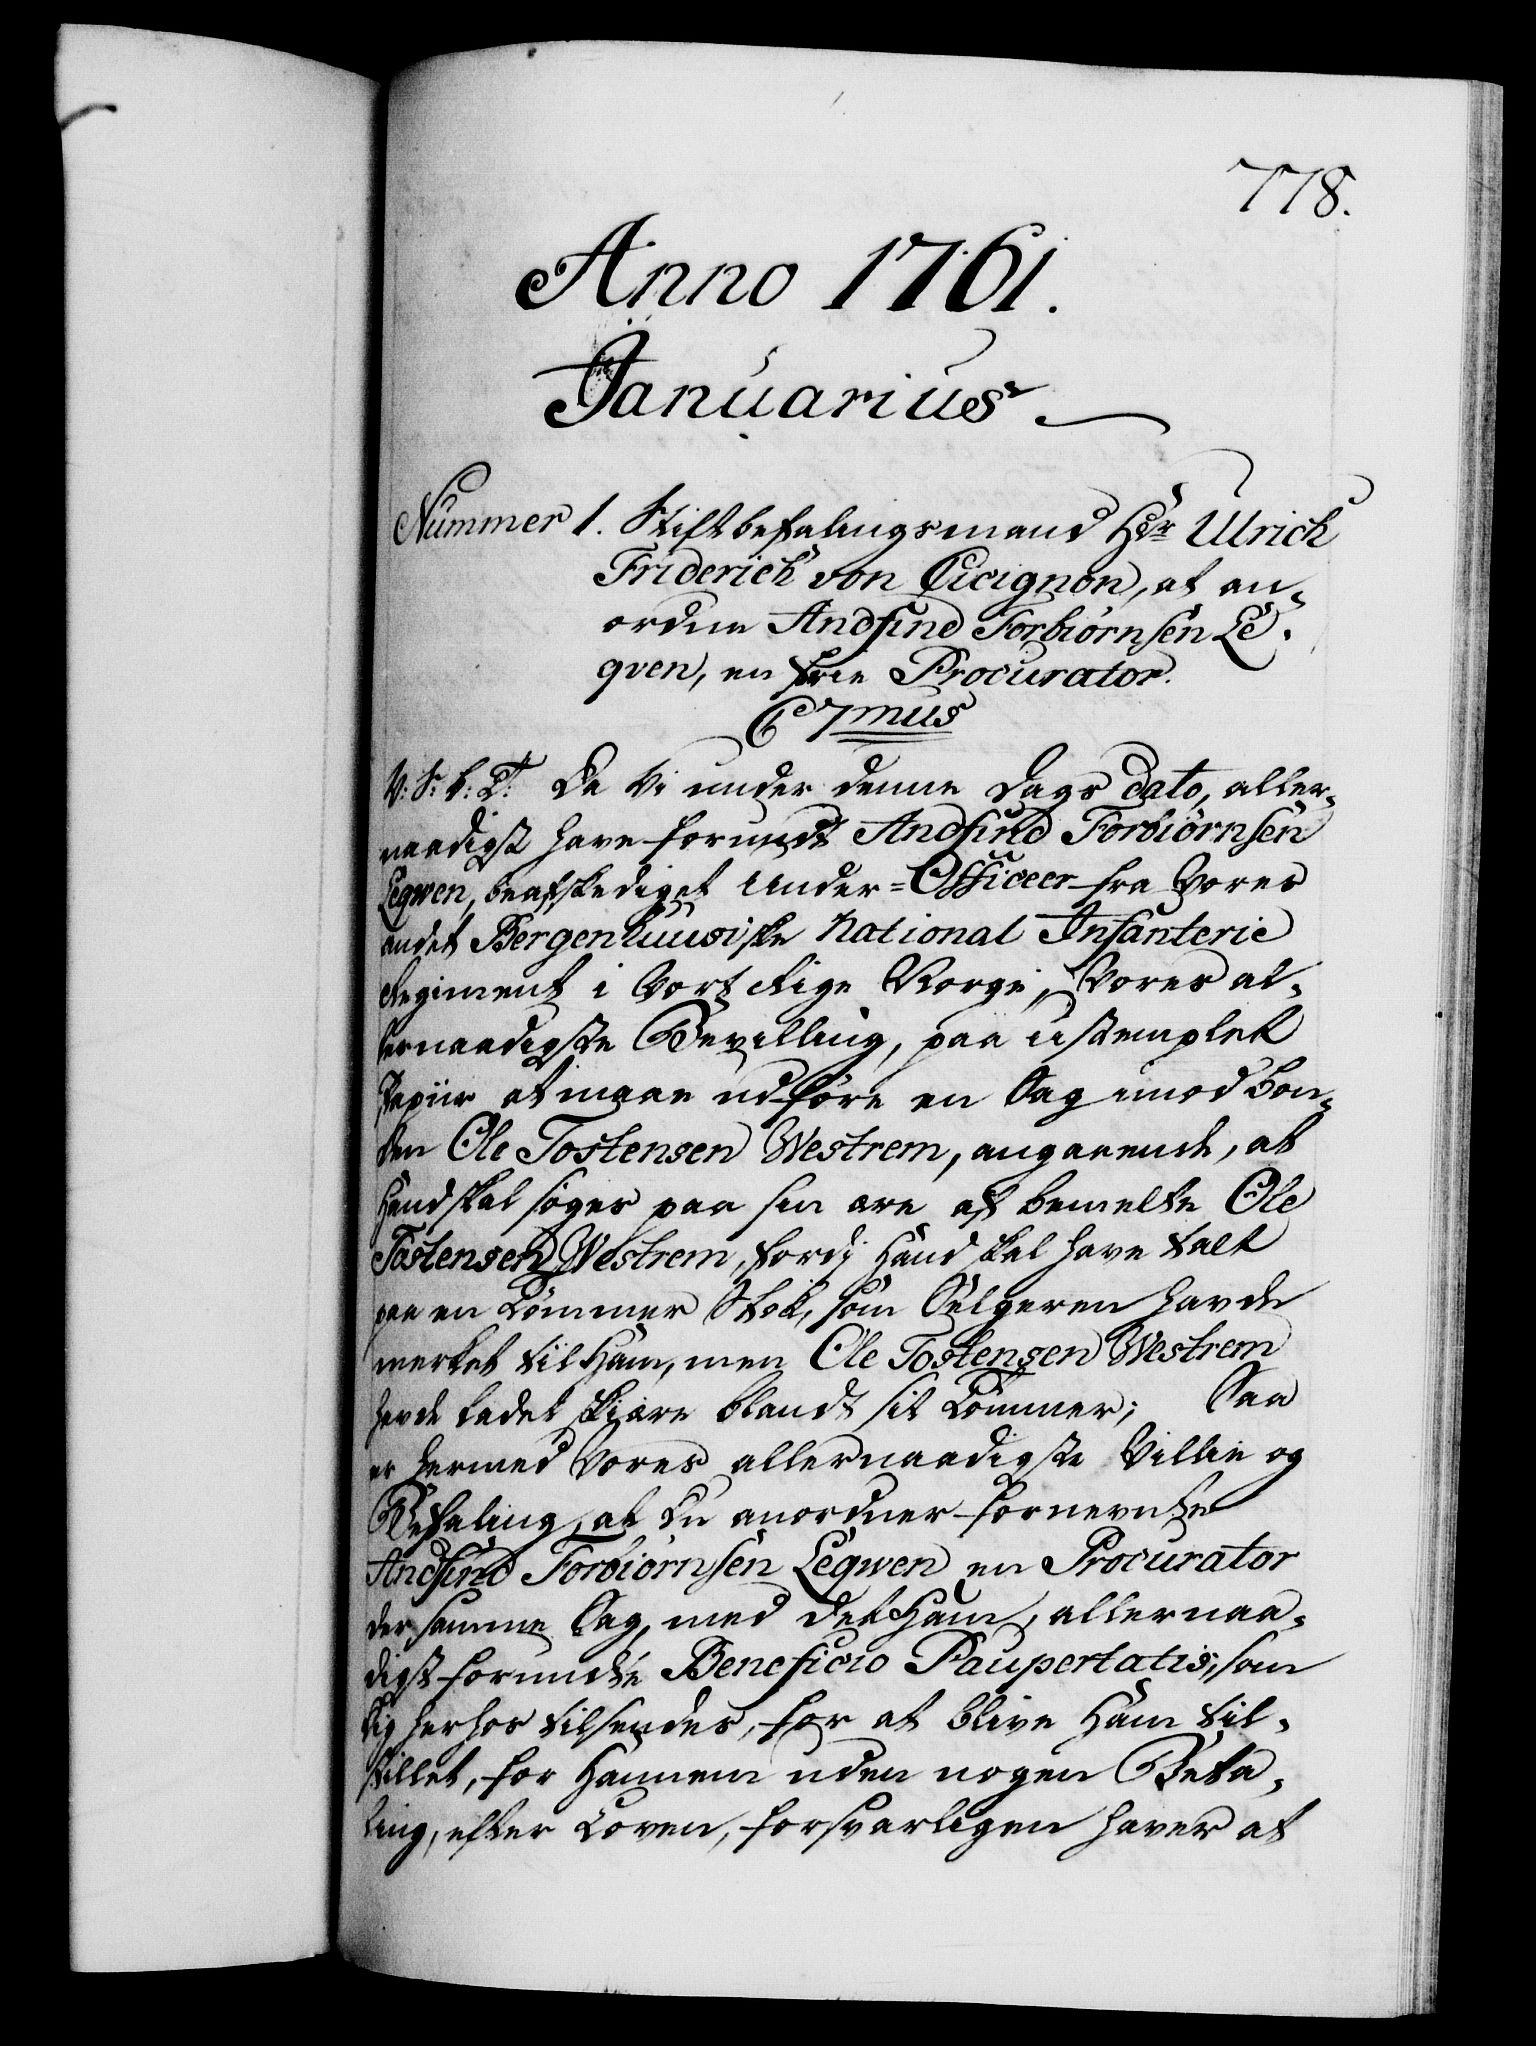 778.
Anno 1761.
Januarius
Nummer 1. Stiftbefalingsmand Hr Ulrich
Friderich von Cicignon, at an-
ordne Andfind Torbiörnsen Le-
qven, en frie Procurator.
C 7mus
V: S: b: T: Da Vi under denne Dags dato, aller-
naadigst have forundt Andfind Torbiörnsen
Leqwen, beafskediget Under-Officeer fra Vores
andet Bergenhuusiske National Infanterie
Regiment i Vort Rige Norge, Vores al-
lernaadigste Bevilling, paa ustemplet
Papiir at maae udføre en Sag imod Bon-
den Ole Tostensen Westrem, angaaende, at
Hand skal søges paa sin ære af bemelte Ole
Tostensen Westrem, fordj Hand skal have talt
paa en Tømmer Stok, som Sælgeren havde
merket til Ham, men Ole Tostensen Westrem
havde ladet skiære blandt sit Tømmer; Saa
er hermed Vores allernaadigste Villie og
Befaling, at Du anordner fornevnte
Andfind Torbiörnsen Leqwen en Procurator
der samme Sag, med det Ham, allernaa-
digst forundte Beneficio Paupertatis, som
Dig herhos tilsendes, for at blive Ham til-
stillet, for Hannem uden nogen Beta-
ling, efter Loven, forsvarligen haver at